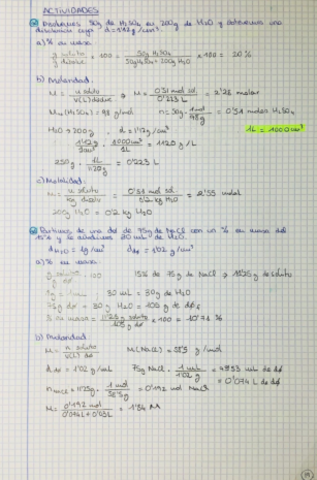 ACTIVIDADES
Disolvemos 50g de H₂SO₄ en 200g de H₂O y obtenemos una
disolución cuya d = 1'12 g/cm³.
a) % en masa.
g soluto / g disolvc · 100 = 50g H₂SO₄ / 50g H₂SO₄ + 200g H₂O × 100 = 20%
b) Molaridad.
M = n soluto / V(L) disolvc M = 0'51 mol sol. / 0'223 L = 2'28 molar
Mₘ(H₂SO₄) = 98 g/mol n = 50g · 1mol / 98g = 0'51 moles H₂SO₄
H₂O → 200g d = 1'12g/cm³ 1L = 1000cm³
1'12g / 1cm³ · 1000cm³ / 1L = 1120 g/L
250g · 1L / 1120g = 0'223 L
c) Molalidad.
m = n soluto / kg disolv = 0'51 mol sol. / 0'2 kg H₂O = 2'55 molal
200g H₂O = 0'2 kg H₂O
Partimos de una dº de 75g de NaCl con un % en masa del
15% y le añadimos 30 mL de H₂O.
d H₂O = 1g/cm³ d dº = 1'02 g/cm³
a) % en masa.
g soluto · 100 15% de 75g de NaCl = 11'25g de soluto
30 mL = 30g de H₂O
75g dº + 30g H₂O = 105g de dº
% en masa = 11'25g soluto / 105g dº × 100 = 10'71 %
b) Molaridad.
M = n soluto / V(L) dº M(NaCl) = 58'5 g/mol
d dº = 1'02 g/mL 75g NaCl · 1 mL / 1'02 g = 73'53 mL de dº
= 0'074 L de dº
n NaCl = 11'25g · 1 mol / 58'5g = 0'192 mol NaCl
M = 0'192 mol / 0'074L + 0'03L = 1'84 M